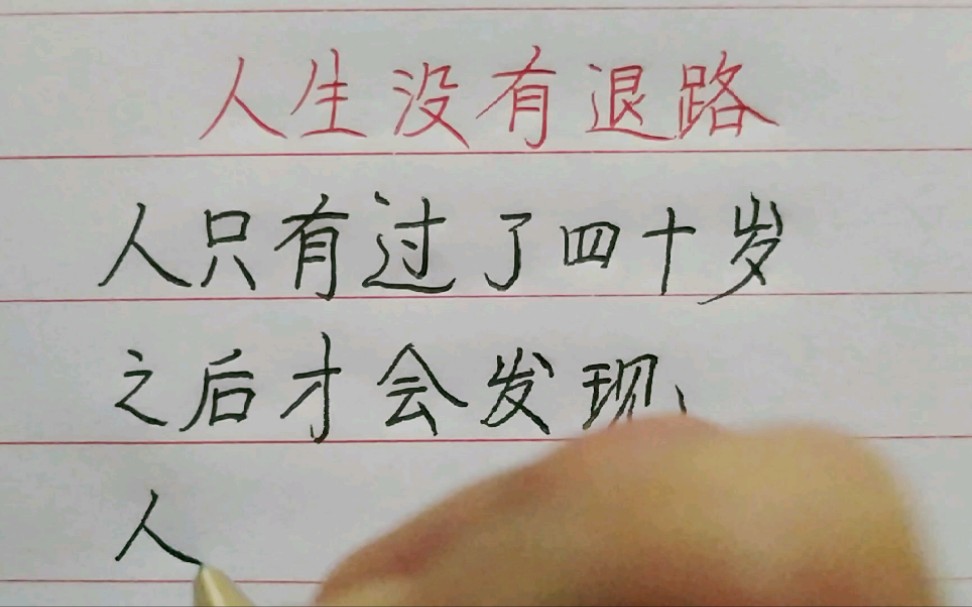 人生没有退路
人只有过了四十岁
之后才会发现、
人